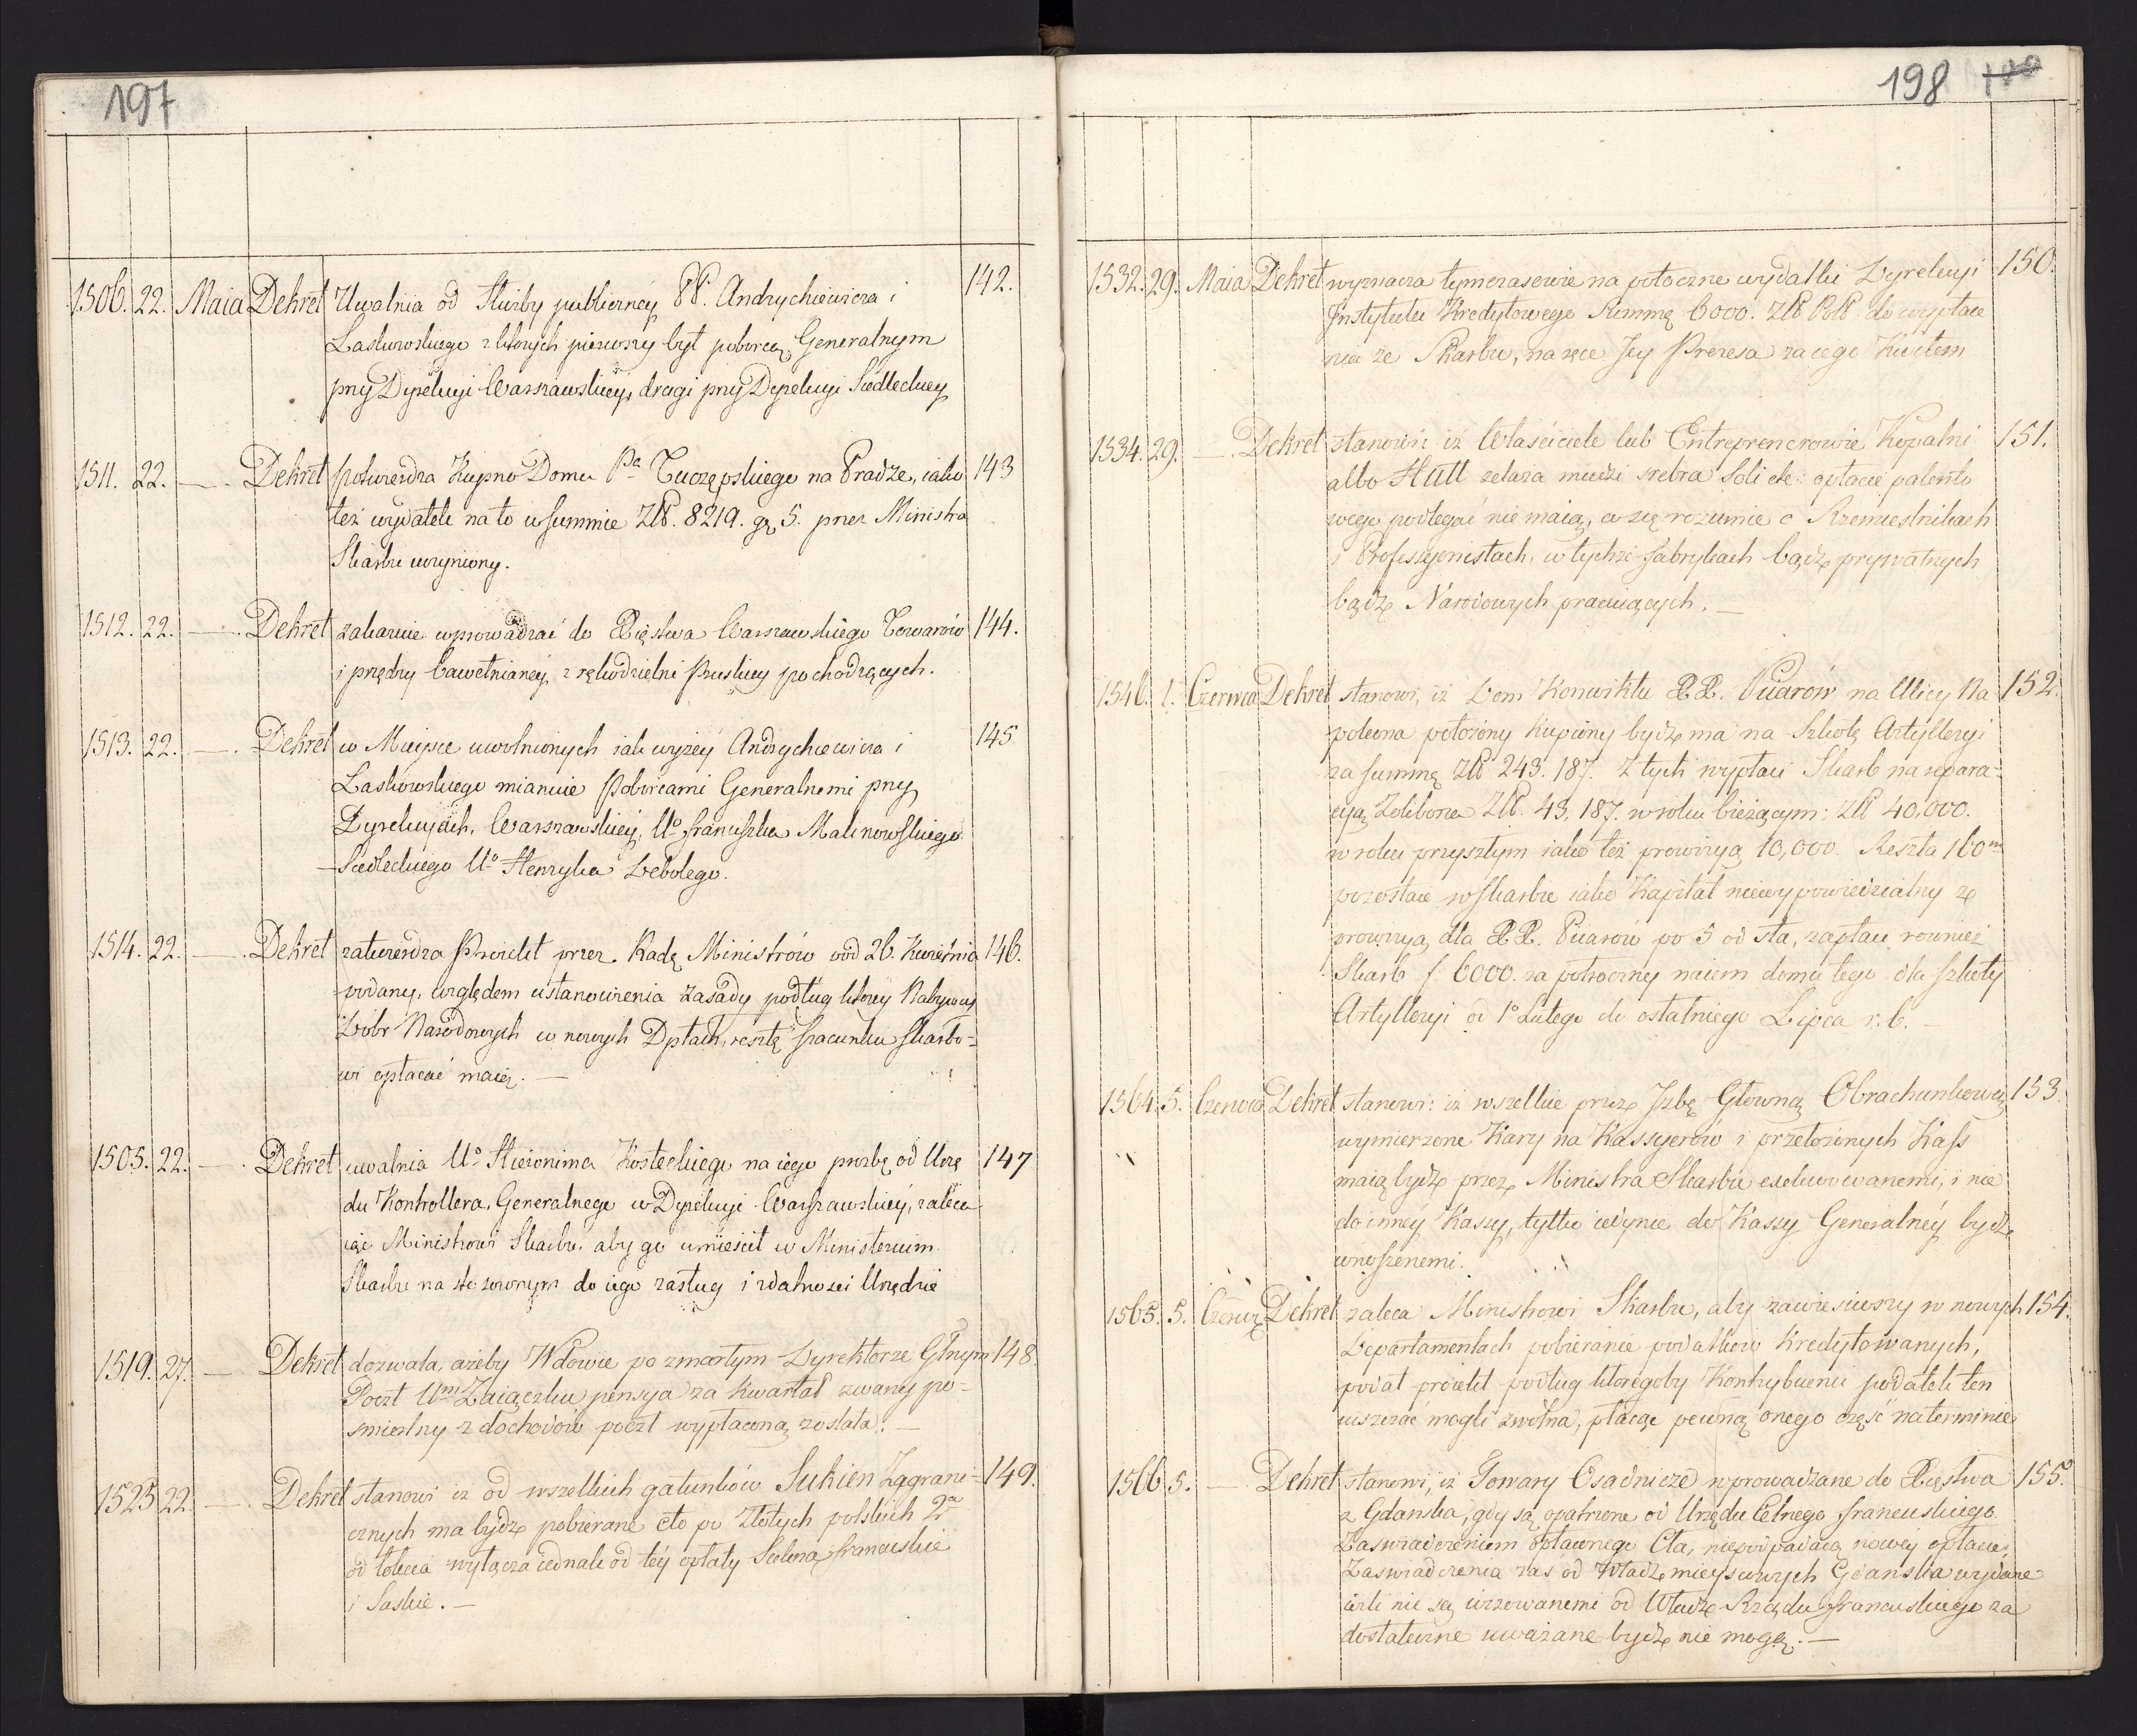 197
1506. 22. Maia Dekret Uwalnia od Służby publiczney PP. Andrychiewicza i 142.
Laskowskiego z których pierwszy był poborcą Generalnym
przy Dyrekcyi Warszawskiey, drugi przy Dyrekcyi Siedleckiey
1511. 22. — Dekret potwierdza Kupno Domu Pa Tuczępskiego na Pradze, iako 143
też wydatek na to w summie ZłP. 8219. gr. 5. przez Ministra
Skarbu uczyniony.
1512. 22. — Dekret zakazuie wprowadzać do Xięstwa Warszawskiego Towarów 144.
i przędzy bawełnianey z rękodzielni Pruskiey pochodzących.
1513. 22. — Dekret w Mieysce uwolnionych iak wyżey Andrychiewicza i 145
Laskowskiego mianuie Poborcami Generalnemi przy
Dyrekcyach, Warszawskiey, Uo Franciszka Malinowskiego
Siedleckiego Uo Henryka Debolego.
1514. 22. — Dekret zatwierdza Proiekt przez Radę Ministrów pod 26. Kwietnia 146.
podany, względem ustanowienia zasady podług którey Nabywcy
Dobr Narodowych w nowych Dptach, resztę szacunku skarbo-
wi opłacać maią. —
1505. 22. — Dekret uwalnia Uo Hieronima Kosteckiego na iego prozbę od Urzę 147
du Kontrollera Generalnego w Dyrekcyi Warszawskiey, zaleca
iąc Ministrowi Skarbu, aby go umieścił w Ministerium
Skarbu na stosownym do iego zasług i zdatności Urzędzie
1519. 27. — Dekret dozwala, ażeby Wdowie po zmarłym Dyrektorze Głnym 148.
Poczt Um Zaiączku pensya za kwartał zwany po-
smiertny z dochodów poczt wypłaconą została. —
1525 22 — Dekret stanowi iż od wszelkich gatunków Sukien Zagrani- 149.
cznych ma bydź pobierane cło po Złotych polskich 2a
od łokcia wyłącza iednak od tey opłaty Sukna francuskie
i Saskie. —
198 100
1532. 29. Maia Dekret wyznacza tymczasowie na potoczne wydatki Dyrekcyi 150.
Instytutu Kredytowego Summę 6000. ZłP Pols. do wypłace
nia ze Skarbu, na ręce Jey Prezesa za iego Kwitem
1534. 29. — Dekret stanowi iż Właściciele lub Entreprenerowie Kopalni 151.
albo Hutt żelaza miedzi srebra Soli etc: opłacie patento
wego podlegać nie maią, co się rozumie o Rzemieslnikach
i Professyonistach, w tychże fabrykach bądź prywatnych
bądź Narodowych pracuiących. —
1546. 1. Czerwca Dekret stanowi, iż Dom Konwiktu XX. Piiarów na Ulicy Na 152.
poleona położony kupiony bydź ma na Szkołę Artylleryi
za summę ZłP 243.187. Z tych wypłaci Skarb na repara-
cyą Zoliborza ZłP. 43,187. w roku bieżącym: ZłP 40,000.
w roku przyszłym iako też prowizyą 10,000. Reszta 160m
pozostaie w Skarbie iako Kapitał niewypowiedzialny ze
prowizyą dla XX. Piiarów po 5 od sta, zapłaci rownież
Skarb f. 6000. za półroczny naiem domu tego dla szkoły
Artylleryi od 1o Lutego do ostatniego Lipca r. b. —
1564. 5. Czerwca Dekret stanowi: iż wszelkie przez Izbę Główną Obrachunkową 153.
wymierzone Kary na Kassyerów i przełożonych Kass
maią bydź przez Ministra Skarbu exekwowanemi, i nie
do inney Kassy, tylko iedynie do Kassy Generalney bydź
wnoszenemi.
1565. 5. Czerwc Dekret zaleca Ministrowi Skarbu, aby zawiesiwszy w nowych 154.
Departamentach pobieranie podatków Kredytowanych,
podał proiekt podług któregoby Kontrybuenci podatek ten
uiszczać mogli zwolna, płacąc pewną onego część na terminie
1566 5. — Dekret stanowi, iż Towary Osadnicze wprowadzane do Xięstwa 155.
z Gdańska, gdy są opatrzone od Urzędu Celnego francuskiego
Zaswiadczeniem opłaconego Cła, niepodpadaią nowey opłacie
Zaswiadczenia zaś od Władz mieyscowych Gdańska wydane
ieżli nie są wizowanemi od Władz Rządu francuskiego za
dostateczne uważane bydź nie mogą. —